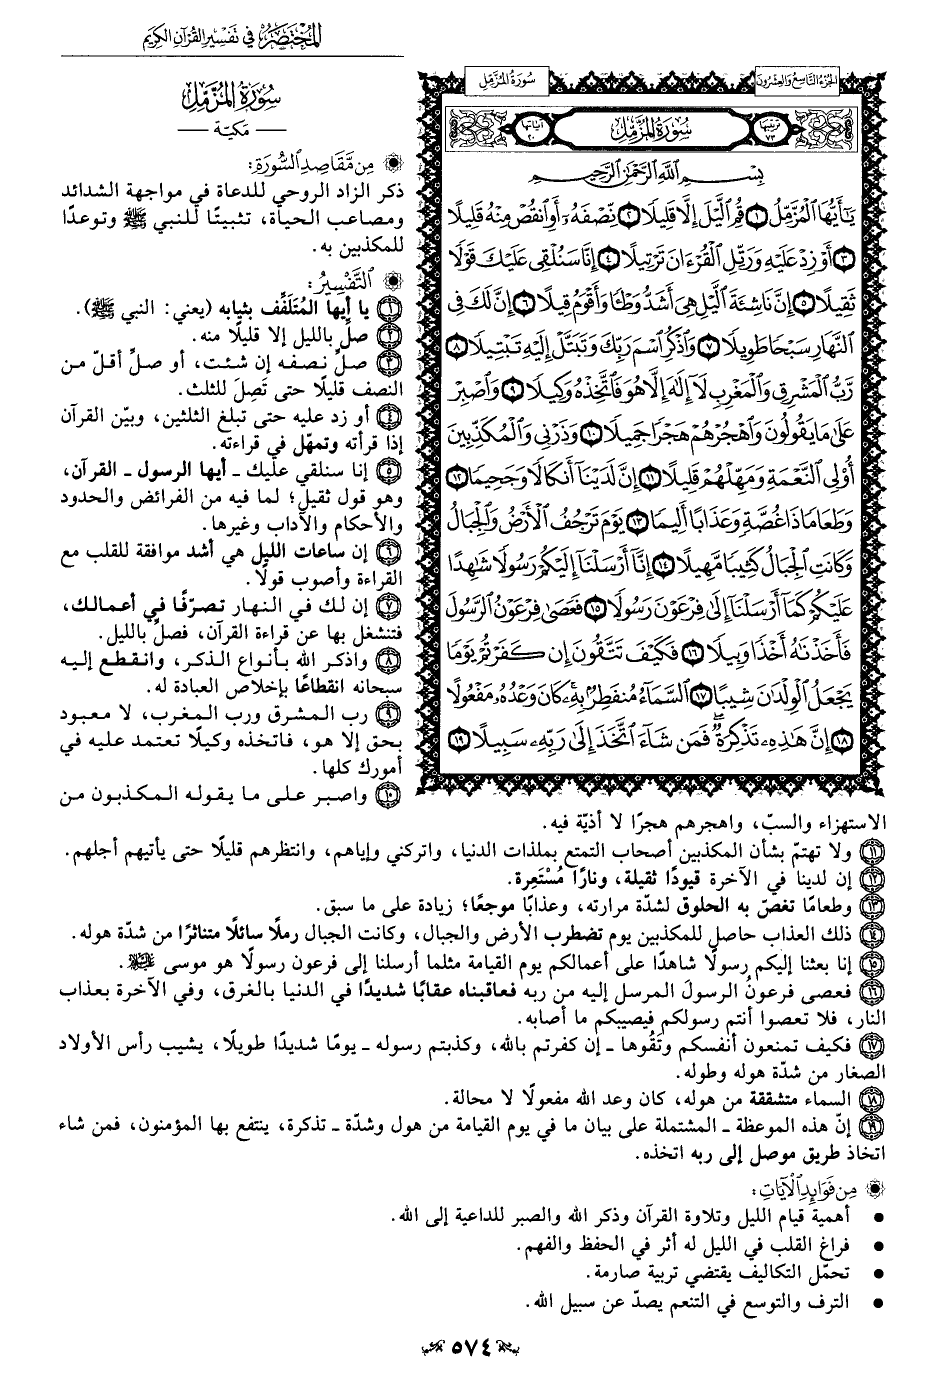 المختصر في تفسير القرآن الكريم
الجزء التاسع والعشرون
سورة المزمل
سورة المزمل
ترتيبها ٧٣
آياتها ٢٠
بِسْمِ ٱللَّهِ ٱلرَّحْمَٰنِ ٱلرَّحِيمِ
يَٰٓأَيُّهَا ٱلْمُزَّمِّلُ ١ قُمِ ٱلَّيْلَ إِلَّا قَلِيلًا ٢ نِّصْفَهُۥٓ أَوِ ٱنقُصْ مِنْهُ قَلِيلًا
٣ أَوْ زِدْ عَلَيْهِ وَرَتِّلِ ٱلْقُرْءَانَ تَرْتِيلًا ٤ إِنَّا سَنُلْقِى عَلَيْكَ قَوْلًا
ثَقِيلًا ٥ إِنَّ نَاشِئَةَ ٱلَّيْلِ هِىَ أَشَدُّ وَطْـًٔا وَأَقْوَمُ قِيلًا ٦ إِنَّ لَكَ فِى
ٱلنَّهَارِ سَبْحًا طَوِيلًا ٧ وَٱذْكُرِ ٱسْمَ رَبِّكَ وَتَبَتَّلْ إِلَيْهِ تَبْتِيلًا ٨
رَّبُّ ٱلْمَشْرِقِ وَٱلْمَغْرِبِ لَآ إِلَٰهَ إِلَّا هُوَ فَٱتَّخِذْهُ وَكِيلًا ٩ وَٱصْبِرْ
عَلَىٰ مَا يَقُولُونَ وَٱهْجُرْهُمْ هَجْرًا جَمِيلًا ١٠ وَذَرْنِى وَٱلْمُكَذِّبِينَ
أُو۟لِى ٱلنَّعْمَةِ وَمَهِّلْهُمْ قَلِيلًا ١١ إِنَّ لَدَيْنَآ أَنكَالًا وَجَحِيمًا ١٢
وَطَعَامًا ذَا غُصَّةٍ وَعَذَابًا أَلِيمًا ١٣ يَوْمَ تَرْجُفُ ٱلْأَرْضُ وَٱلْجِبَالُ
وَكَانَتِ ٱلْجِبَالُ كَثِيبًا مَّهِيلًا ١٤ إِنَّآ أَرْسَلْنَآ إِلَيْكُمْ رَسُولًا شَٰهِدًا
عَلَيْكُمْ كَمَآ أَرْسَلْنَآ إِلَىٰ فِرْعَوْنَ رَسُولًا ١٥ فَعَصَىٰ فِرْعَوْنُ ٱلرَّسُولَ
فَأَخَذْنَٰهُ أَخْذًا وَبِيلًا ١٦ فَكَيْفَ تَتَّقُونَ إِن كَفَرْتُمْ يَوْمًا
يَجْعَلُ ٱلْوِلْدَٰنَ شِيبًا ١٧ ٱلسَّمَآءُ مُنفَطِرٌۢ بِهِۦ كَانَ وَعْدُهُۥ مَفْعُولًا
١٨ إِنَّ هَٰذِهِۦ تَذْكِرَةٌ فَمَن شَآءَ ٱتَّخَذَ إِلَىٰ رَبِّهِۦ سَبِيلًا ١٩
سورة المزمل
— مكية —
من مقاصد السورة:
ذكر الزاد الروحي للدعاة في مواجهة الشدائد
ومصاعب الحياة، تثبيتًا للنبي ﷺ وتوعدًا
للمكذبين به.
التفسير:
١ يا أيها المُتَلَفِّف بثيابه (يعني: النبي ﷺ).
٢ صلِّ بالليل إلا قليلًا منه.
٣ صلِّ نصفه إن شئت، أو صلِّ أقلّ من
النصف قليلًا حتى تَصِلَ للثلث.
٤ أو زد عليه حتى تبلغ الثلثين، وبيّن القرآن
إذا قرأته وتمهّل في قراءته.
٥ إنا سنلقي عليك ـ أيها الرسول ـ القرآن،
وهو قول ثقيل؛ لما فيه من الفرائض والحدود
والأحكام والآداب وغيرها.
٦ إن ساعات الليل هي أشد موافقة للقلب مع
القراءة وأصوب قولًا.
٧ إن لك في النهار تصرّفًا في أعمالك،
فتنشغل بها عن قراءة القرآن، فصلِّ بالليل.
٨ واذكر الله بأنواع الذكر، وانقطع إليه
سبحانه انقطاعًا بإخلاص العبادة له.
٩ رب المشرق ورب المغرب، لا معبود
بحق إلا هو، فاتخذه وكيلًا تعتمد عليه في
أمورك كلها.
١٠ واصبر على ما يقوله المكذبون من
الاستهزاء والسبّ، واهجرهم هجرًا لا أذيّة فيه.
١١ ولا تهتمّ بشأن المكذبين أصحاب التمتع بملذات الدنيا، واتركني وإياهم، وانتظرهم قليلًا حتى يأتيهم أجلهم.
١٢ إن لدينا في الآخرة قيودًا ثقيلة، ونارًا مُسْتَعِرة.
١٣ وطعامًا تغصّ به الحلوق لشدّة مرارته، وعذابًا موجعًا؛ زيادة على ما سبق.
١٤ ذلك العذاب حاصل للمكذبين يوم تضطرب الأرض والجبال، وكانت الجبال رملًا سائلًا متناثرًا من شدّة هوله.
١٥ إنا بعثنا إليكم رسولًا شاهدًا على أعمالكم يوم القيامة مثلما أرسلنا إلى فرعون رسولًا هو موسى عليه السلام.
١٦ فعصى فرعونُ الرسولَ المرسل إليه من ربه فعاقبناه عقابًا شديدًا في الدنيا بالغرق، وفي الآخرة بعذاب
النار، فلا تعصوا أنتم رسولكم فيصيبكم ما أصابه.
١٧ فكيف تمنعون أنفسكم وتَقُوها ـ إن كفرتم بالله، وكذبتم رسوله ـ يومًا شديدًا طويلًا، يشيب رأس الأولاد
الصغار من شدّة هوله وطوله.
١٨ السماء متشققة من هوله، كان وعد الله مفعولًا لا محالة.
١٩ إنّ هذه الموعظة ـ المشتملة على بيان ما في يوم القيامة من هول وشدّة ـ تذكرة، ينتفع بها المؤمنون، فمن شاء
اتخاذ طريق موصل إلى ربه اتخذه.
من فوائد الآيات:
• أهمية قيام الليل وتلاوة القرآن وذكر الله والصبر للداعية إلى الله.
• فراغ القلب في الليل له أثر في الحفظ والفهم.
• تحمّل التكاليف يقتضي تربية صارمة.
• الترف والتوسع في التنعم يصدّ عن سبيل الله.
٥٧٤